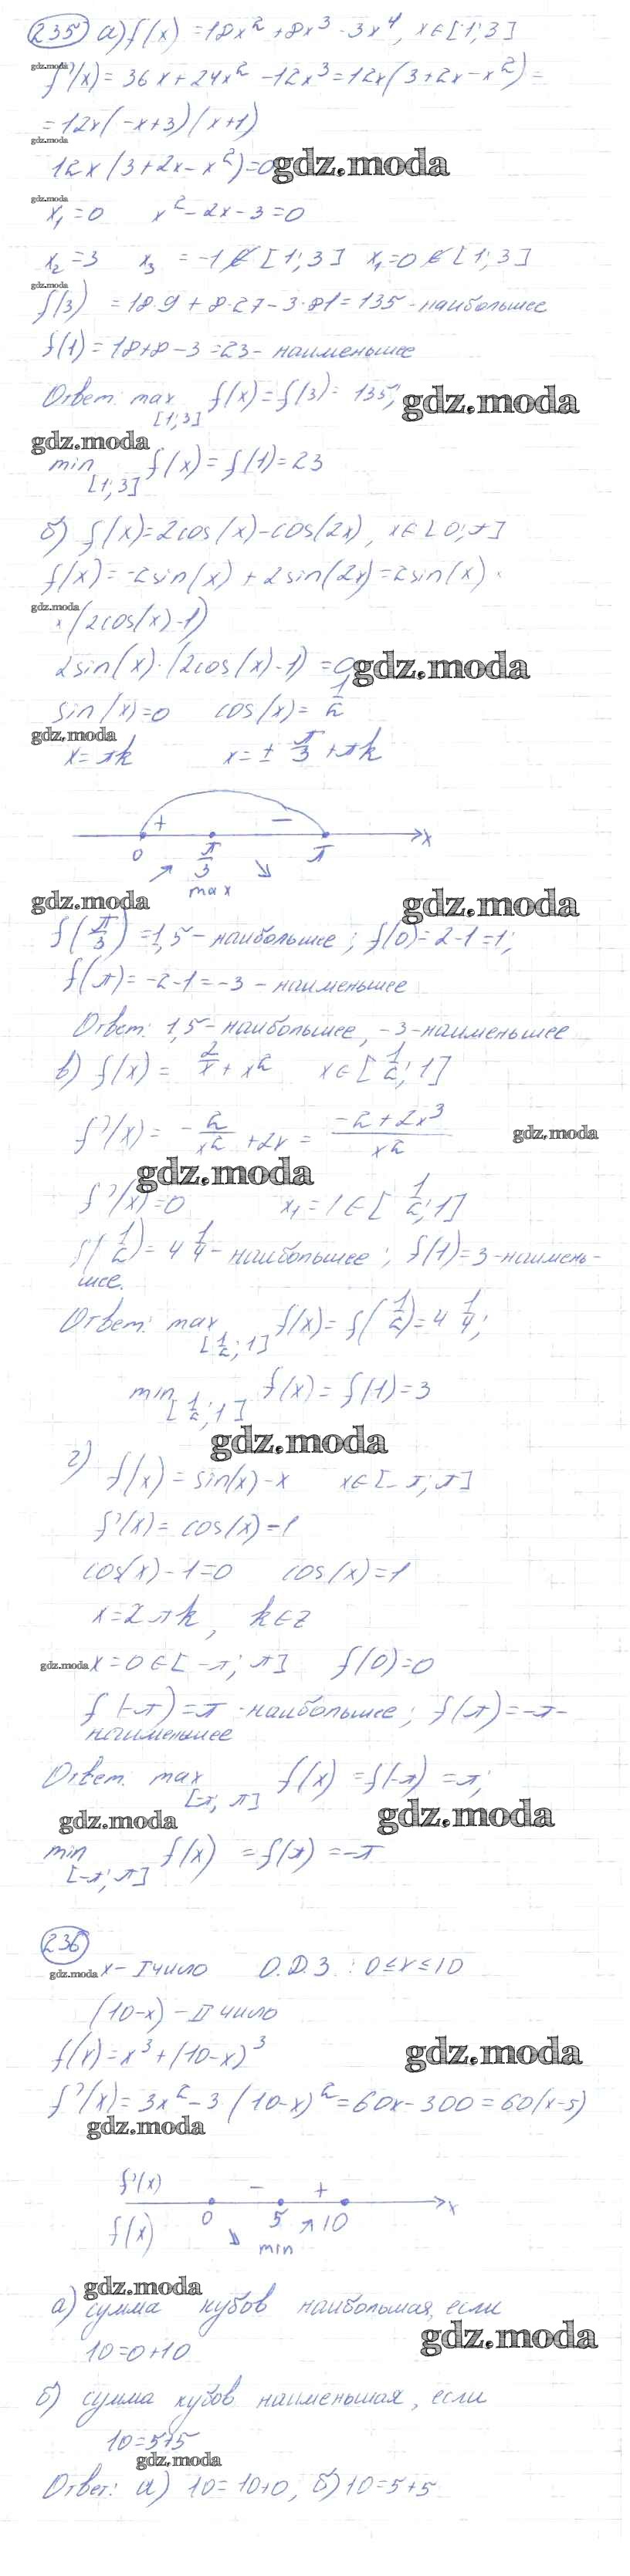 235 а) f(x) = 18x² + 8x³ - 3x⁴, x∈[1; 3]
gdz.moda
f'(x) = 36x + 24x² - 12x³ = 12x(3+2x-x²) =
= 12x(-x+3)(x+1)
gdz.moda
12x(3+2x-x²)=0
gdz.moda
gdz.moda
x₁=0 x²-2x-3=0
x₂=3 x₃ = -1 ∉ [1; 3] x₁=0 ∉ [1; 3]
gdz.moda
f(3) = 18·9 + 8·27 - 3·81 = 135 - наибольшее
f(1) = 18+8-3 = 23 - наименьшее
Ответ: max f(x) = f(3) = 135;
[1; 3]
gdz.moda
gdz.moda
min f(x) = f(1) = 23
[1; 3]
б) f(x)=2cos(x)-cos(2x), x∈[0; π]
f(x) = -2sin(x) + 2sin(2x) = 2sin(x) ·
gdz.moda
· (2cos(x)-1)
2sin(x)·(2cos(x)-1) = 0
gdz.moda
sin(x)=0 cos(x) = 1/2
gdz.moda
x = πk x = ± π/3 + πk
+ −
0 π/3 π x
↗ ↘
max
gdz.moda
gdz.moda
f(π/3) = 1,5 - наибольшее; f(0) = 2-1 = 1;
f(π) = -2-1 = -3 - наименьшее
Ответ: 1,5 - наибольшее, -3 - наименьшее
в) f(x) = 2/x + x² x∈[1/2; 1]
f'(x) = -2/x² + 2x = (-2+2x³)/x²
gdz.moda
gdz.moda
f'(x)=0 x₁=1∈[1/2; 1]
f(1/2) = 4 1/4 - наибольшее; f(1) = 3 - наимень-
шее.
Ответ: max f(x) = f(1/2) = 4 1/4;
[1/2; 1]
min f(x) = f(1) = 3
[1/2; 1]
gdz.moda
г) f(x) = sin(x)-x x∈[-π; π]
f'(x) = cos(x)-1
cos(x)-1=0 cos(x)=1
x=2πk, k∈z
gdz.moda
x=0∈[-π; π] f(0)=0
f(-π) = π - наибольшее; f(π) = -π -
наименьшее
Ответ: max f(x) = f(-π) = π;
[-π; π]
gdz.moda
gdz.moda
min f(x) = f(π) = -π
[-π; π]
236
gdz.moda
x - I число О.Д.З : 0≤x≤10
(10-x) - II число
f(x)=x³+(10-x)³
gdz.moda
f'(x) = 3x²-3(10-x)² = 60x-300 = 60(x-5)
gdz.moda
f'(x) − +
0 5 10 x
f(x) ↘ ↗
min
gdz.moda
а) сумма кубов наибольшая, если
gdz.moda
10=0+10
б) сумма кубов наименьшая, если
10=5+5
gdz.moda
Ответ: а) 10=10+0, б) 10=5+5